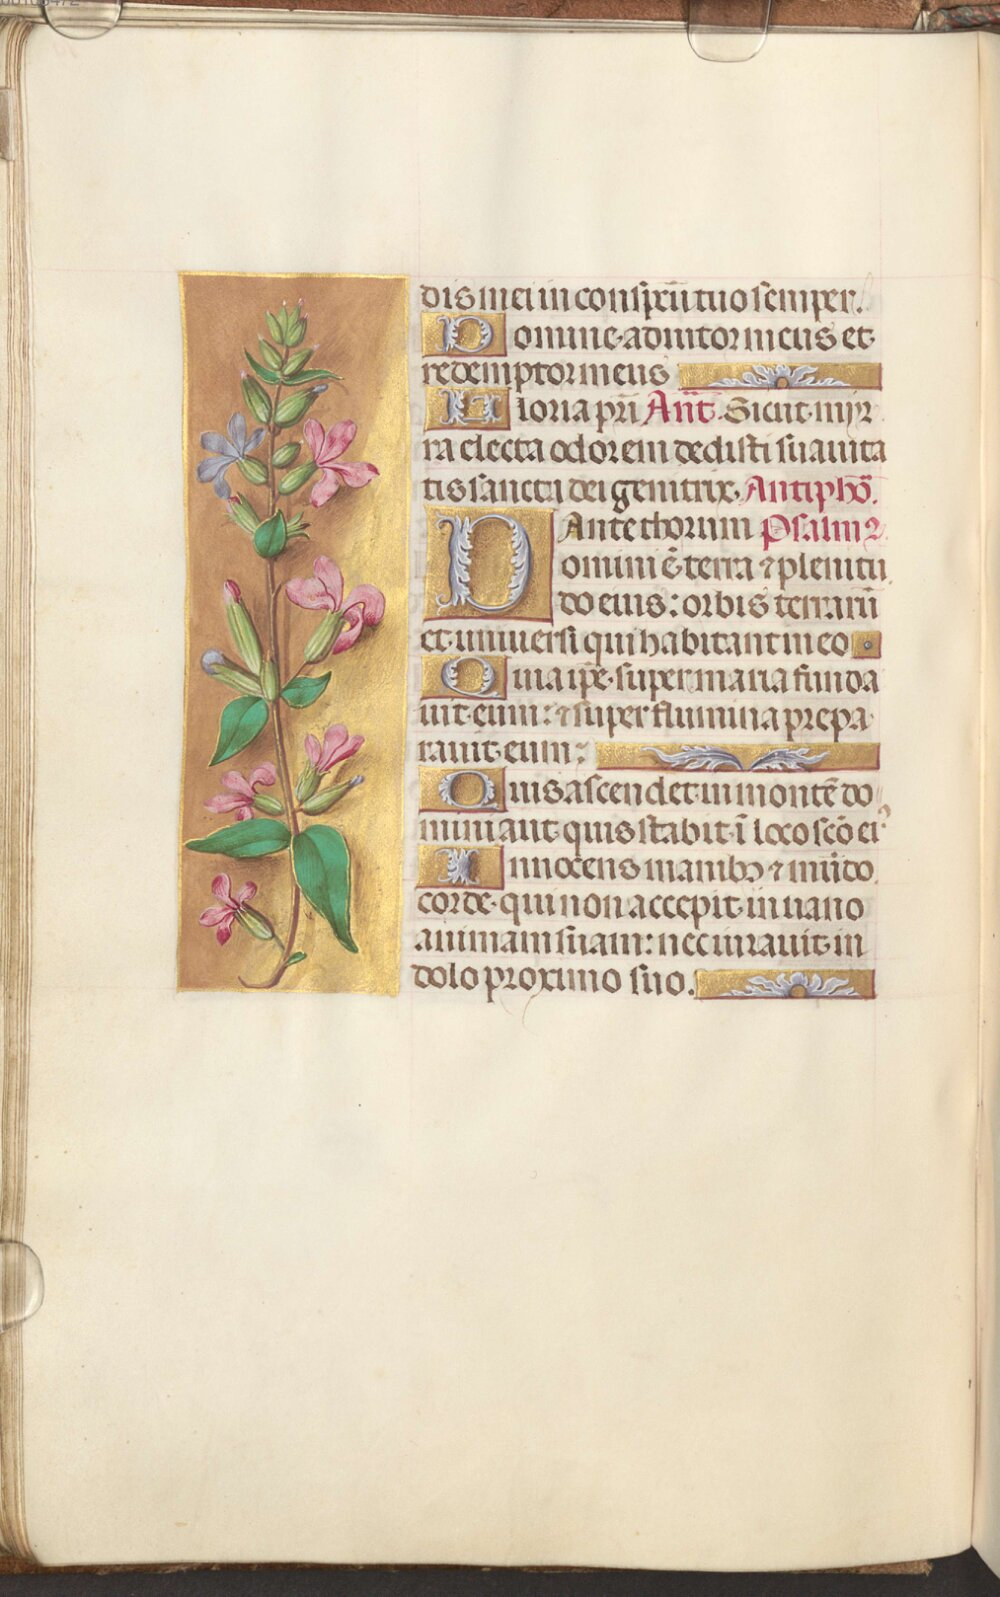 dis mei in conspectu tuo semper.
Domine adiutor meus et
redemptor meus
Gloria pri Ant. Sicut myr
ra electa odorem dedisti suauita
tis sancta dei genitrix. Antiphō.
Ante thorum Psalm²
Domini ē terra ⁊ plenitu
do eius: orbis terrarū
et uniuersi qui habitant in eo
Quia ip̄e super maria funda
uit eum: ⁊ super flumina prepa
rauit eum:
Quis ascendet in montē do
mini aut quis stabit ī loco scō ei⁹
Innocens manibꝫ ⁊ mūdo
corde qui non accepit in uano
animam suam: nec iurauit in
dolo proximo suo.